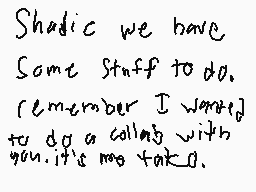 Shadic we have
some stuff to do.
remember I wanted
to do a collab with
you. it's me tako.